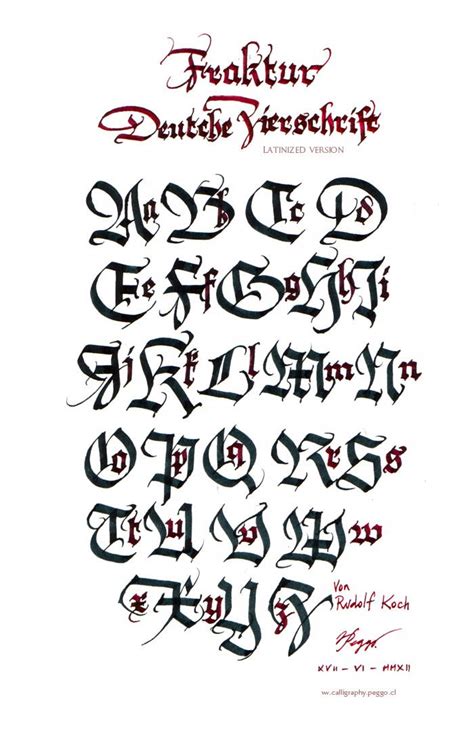 Fraktur
Deutche Zierschrift
LATINIZED VERSION
A a B b C c D d
E e F f G g H h I i
J j K k L l M m N n
O o P p Q q R r S s
T t U u V v W w
x X y Y z Z
von
Rudolf Koch
Peggo.
XVII - VI - MMXII
vw.calligraphy.peggo.cl